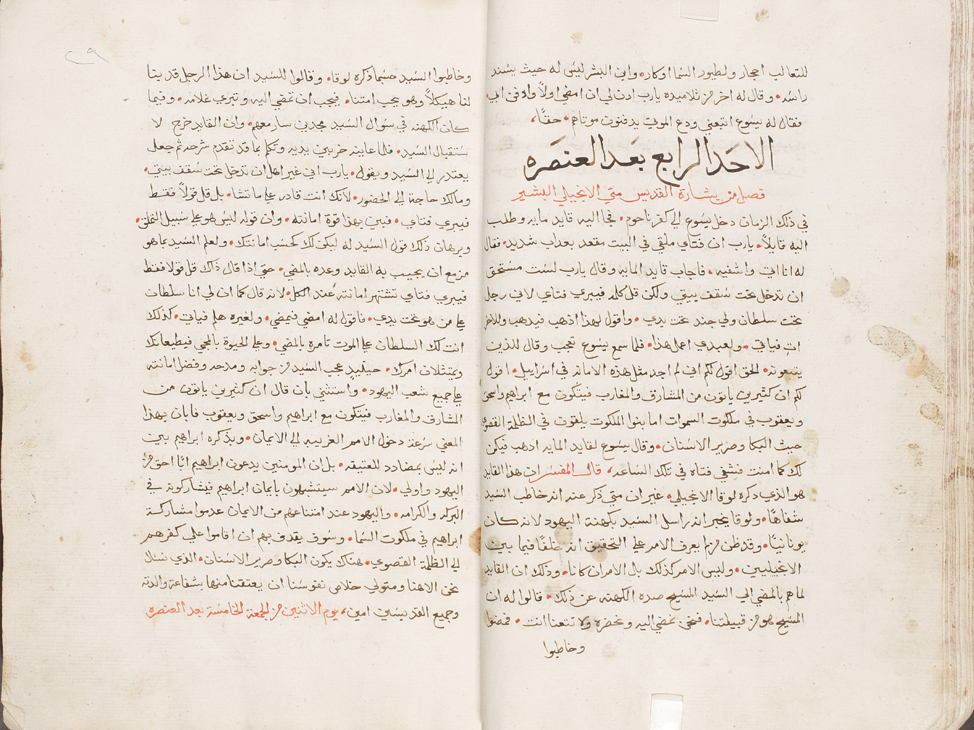 للثعالب احجار ولطيور السما اوكار، وابن البشر ليس له حيث يسند
راسه، وقال له اخر من تلاميذه يارب ادن لي ان امضي اولاً وادفن ابي
فقال له يسوع اتبعني ودع الموتى يدفنون موتاهم، حقاً،
الاحد الرابع بعد العنصره
فصل من بشارة القديس متي الانجيلي البشير
في ذلك الزمان دخل يسوع الي كفرناحوم، فجا اليه قايد مايه وطلب
اليه قايلاً، يارب ان فتاي ملقي في البيت مقعد بعداب شديد، فقال
له انا اتي واشفيه، فاجاب قايد المايه وقال يارب لست مستحق
ان تدخل تحت سقف بيتي، ولكن قل كلمه فيبري فتاي لاني رجل
تحت سلطان ولي جند تحت يدي، واقول لهذا اذهب فيذهب وللاخر
ات فياتي، ولعبدي اعمل هذا، فلما سمع يسوع تعجب وقال للذين
يتبعونه، الحق اقول لكم اني لم اجد مثل هذه الامانه في اسراييل، اقول
لكم ان كثيرين ياتون من المشارق والمغارب فيتكون مع ابراهيم واسحق
ويعقوب في ملكوت السموات اما بنوا الملكوت يلقون في الظلمة القصوه
حيث البكا وصرير الاسنان، وقال يسوع لقايد المايه اذهب فيكن
لك كما امنت فشفي فتاه في تلك الساعه، قال المفسر ان هذا القايد
هو الذي ذكره لوقا الانجيلي، غير ان متي ذكر عنه انه خاطب السيد
شفاهاً، ولوقا يخبر انه راسل السيد بكهنة اليهود لانه كان
يونانياً، وقد ظن من لم يعرف الامر علي التحقيق انه خلفاً فيما بين
الانجيليين، وليس الامر كذلك بل الامران كانا، وذلك ان القايد
لما هم بالمضي الي السيد المسيح صده الكهنه عن ذلك، قالوا له ان
المسيح هو من قبيلتنا، فنحن نمضي اليه ونحضره ولا تتعنا انت، فمضوا
وخاطبوا
٢٩
وخاطبوا السيد حسبما ذكره لوقا، وقالوا للسيد ان هذا الرجل قد بنا
لنا هيكلاً وهو يحب امتنا، فيجب ان تمضي اليه وتبري غلامه، وفيما
كان الكهنه في سوال السيد مجدين سار معهم، وان القايد خرج لا
ستقبال السيد، فلما عاينه خر بين يديه وتكلم بما قد تقدم شرحه ثم جعل
يعتدر الي السيد ويقول، يارب اني غير اهل ان تدخل تحت سقف بيتي،
ومالك حاجة الي الحضور، لانك انت قادر علي ما تشا، بل قل قولاً فقط
فيبري فتاي، فبين بهذا قوة امانته، وان قوله ليس هو علي سبيل التملق،
وبرهان ذلك قول السيد له ليكن لك كحسب امانتك، ولعلم السيد بما هو
مزمع ان يجيب به القايد وعده بالمضي، حتي اذا قال ذلك قل قولا فقط
فيبري فتاي تشتهر امانته عند الكل، لانه قال كما ان لي انا سلطان
علي من هو تحت يدي، فاقول له امضي فيمضي، ولغيره هلم فياتي، كذلك
انت لك السلطان علي الموت تامره بالمضي، وعلي الحيوة بالمجي فيطيعانك
ويمتثلان امرك، حينيذ عجب السيد من جوابه ومدحه وفضل امانته
علي جميع شعب اليهود، واستثني بان قال ان كثيرين ياتون من
المشارق والمغارب فيتكون مع ابراهيم واسحق ويعقوب فابان بهذا
المعني سرعة دخول الامم الغريبه الي الايمان، وبذكره ابراهيم بين
انه ليس بمضادد للعتيقه، بل ان المومنين يدعون ابراهيم اباً احق من
اليهود واولي، لان الامم سيتشبهون بايمان ابراهيم فيشاركونه في
البركه والكرامه، واليهود عند امتناعهم من الايمان عدموا مشاركة
ابراهيم في ملكوت السما، وسوف يقدف بهم ان اقاموا علي كفرهم
الي الظلمة القصوي، هناك يكون البكا وصرير الاسنان، الذي نسال
نحن الاهنا ومتولي خلاص نفوسنا ان يعتقنا منها بشفاعة والدته
وجميع القديسين امين، يوم الاثنين من الجمعة الخامسة بعد العنصره